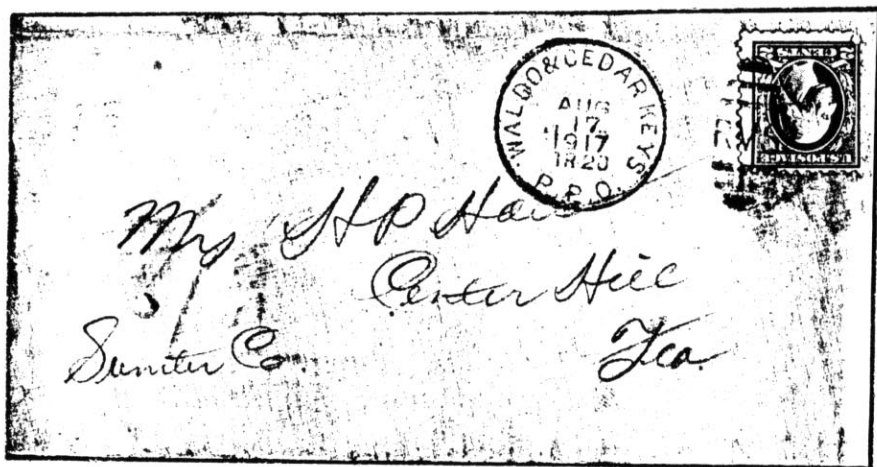 WALDO & CEDAR KEYS
AUG
17
1917
TR 20
R.P.O.
U.S. POSTAGE
Mrs H P
Center Hill
Sumter Co. Fla.